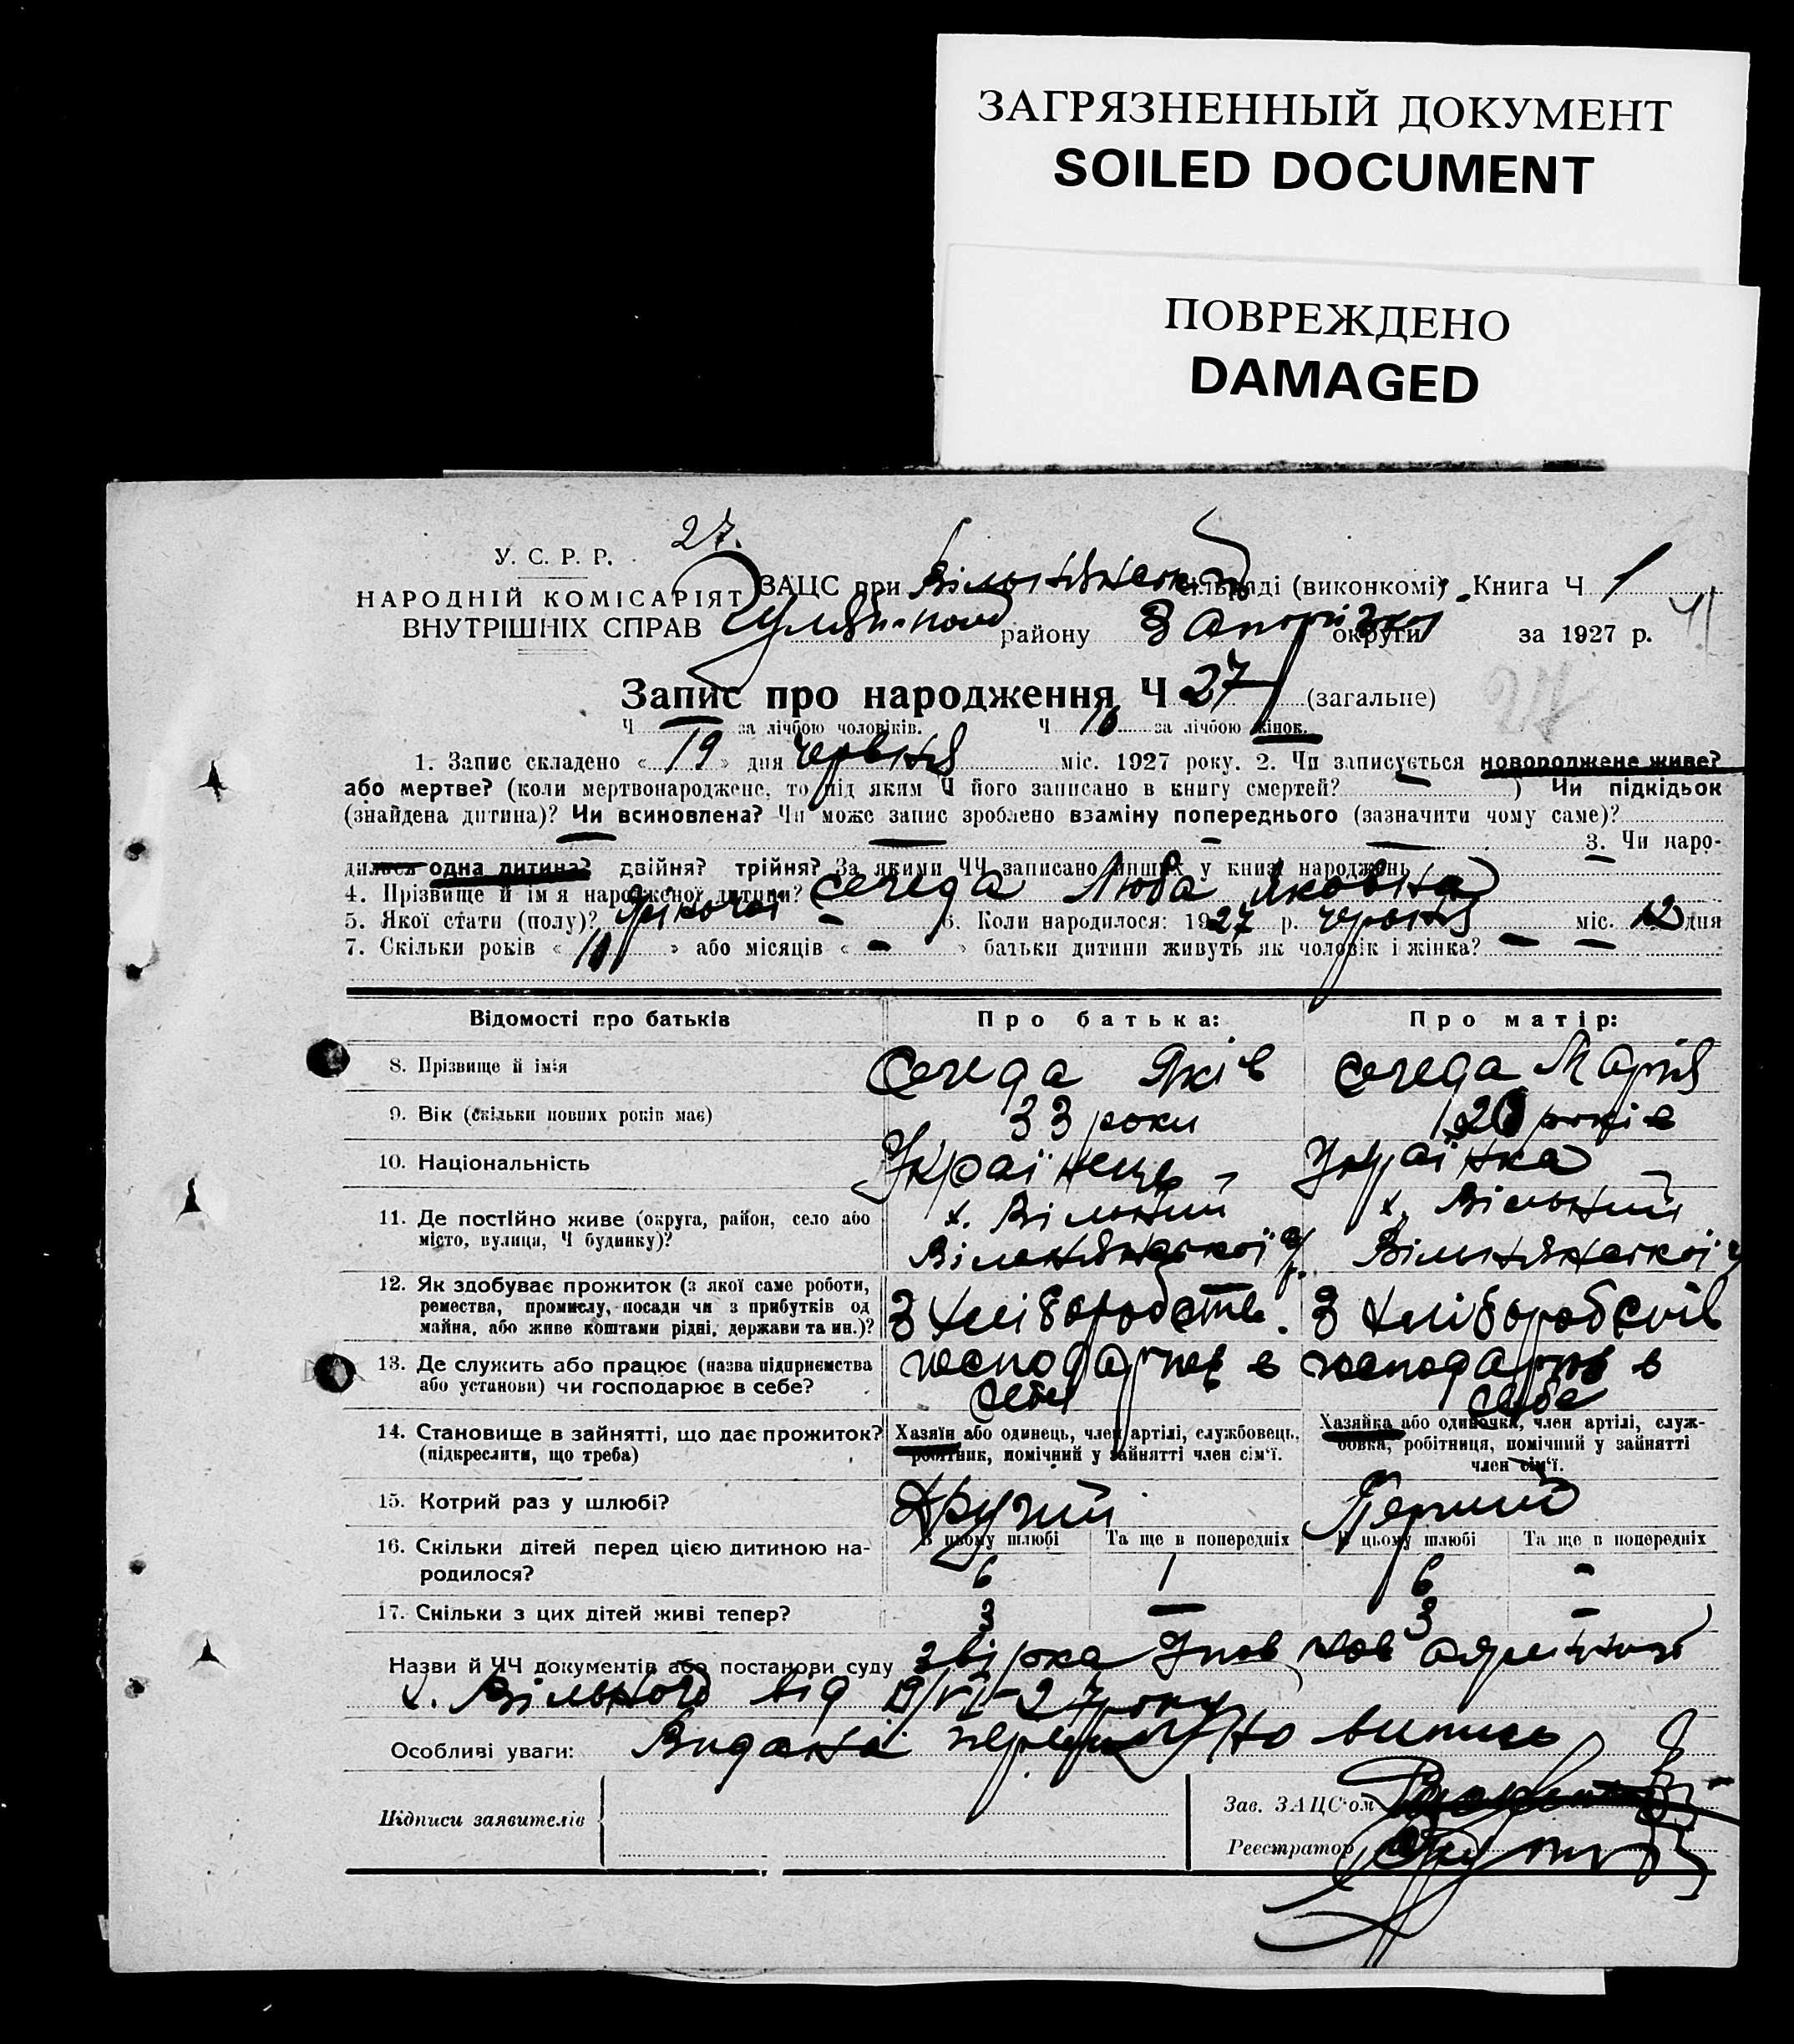 ЗАГРЯЗНЕННЫЙ ДОКУМЕНТ
SOILED DOCUMENT
ПОВРЕЖДЕНО
DAMAGED
27.
У. С. Р. Р.
НАРОДНІЙ КОМІСАРІЯТ
ВНУТРІШНІХ СПРАВ
ЗАЦС при Вільнянській сільраді (виконкомі). Книга Ч 1
Гуляй-поль району Запорізької округи за 1927 р. 41
Запис про народження Ч 27 (загальне)
27
Ч — за лічбою чоловіків. Ч 16 за лічбою жінок.
1. Запис складено « 19 » дня червня міс. 1927 року. 2. Чи записується новороджене живе?
або мертве? (коли мертвонароджене, то під яким Ч його записано в книгу смертей? — ) Чи підкідьок
(знайдена дитина)? Чи всиновлена? Чи може запис зроблено взаміну попереднього (зазначити чому саме)?
3. Чи наро-
дилося одна дитина? двійня? трійня? За якими ЧЧ записано инших у книзі народжень
4. Прізвище й ім'я народженої дитини? Середа Люба Яковівна
5. Якої стати (полу)? Жіночої — 6. Коли народилося: 1927 р. червня міс. 12 дня
7. Скільки років « » або місяців « — » батьки дитини живуть як чоловік і жінка? — —
Відомості про батьків Про батька: Про матір:
8. Прізвище й ім'я Середа Яків Середа Марія
9. Вік (скільки повних років має) 33 роки років
10. Національність Українець – Українка –
11. Де постійно живе (округа, район, село або х. Вільний х. Вільний
місто, вулиця, Ч будинку)? Вільнянської с/р. Вільнянської
12. Як здобуває прожиток (з якої саме роботи,
ремества, промислу, посади чи з прибутків од
майна, або живе коштами рідні, держави та ин.)? З хліборобств. З хліборобств
13. Де служить або працює (назва підприємства господарює в господарює в
або установи) чи господарює в себе? себе себе
14. Становище в зайнятті, що дає прожиток?
(підкреслити, що треба)
Хазяїн або одинець, член артілі, службовець,
робітник, помічний у зайнятті член сім'ї.
Хазяйка або одиночка, член артілі, служ-
бовка, робітниця, помічний у зайнятті
член сім'ї.
15. Котрий раз у шлюбі? Другий Перший
16. Скільки дітей перед цією дитиною на-
родилося?
В цьому шлюбі Та ще в попередніх В цьому шлюбі Та ще в попередніх
6 1 6 -
17. Скільки з цих дітей живі тепер? 3 — 3 -
Назви й ЧЧ документів або постанови суду звірка Упов
х. Вільного від 19/VI-27 року
Особливі уваги: Видана випись
Підписи заявителів
Зав. ЗАЦС'ом
Реєстратор